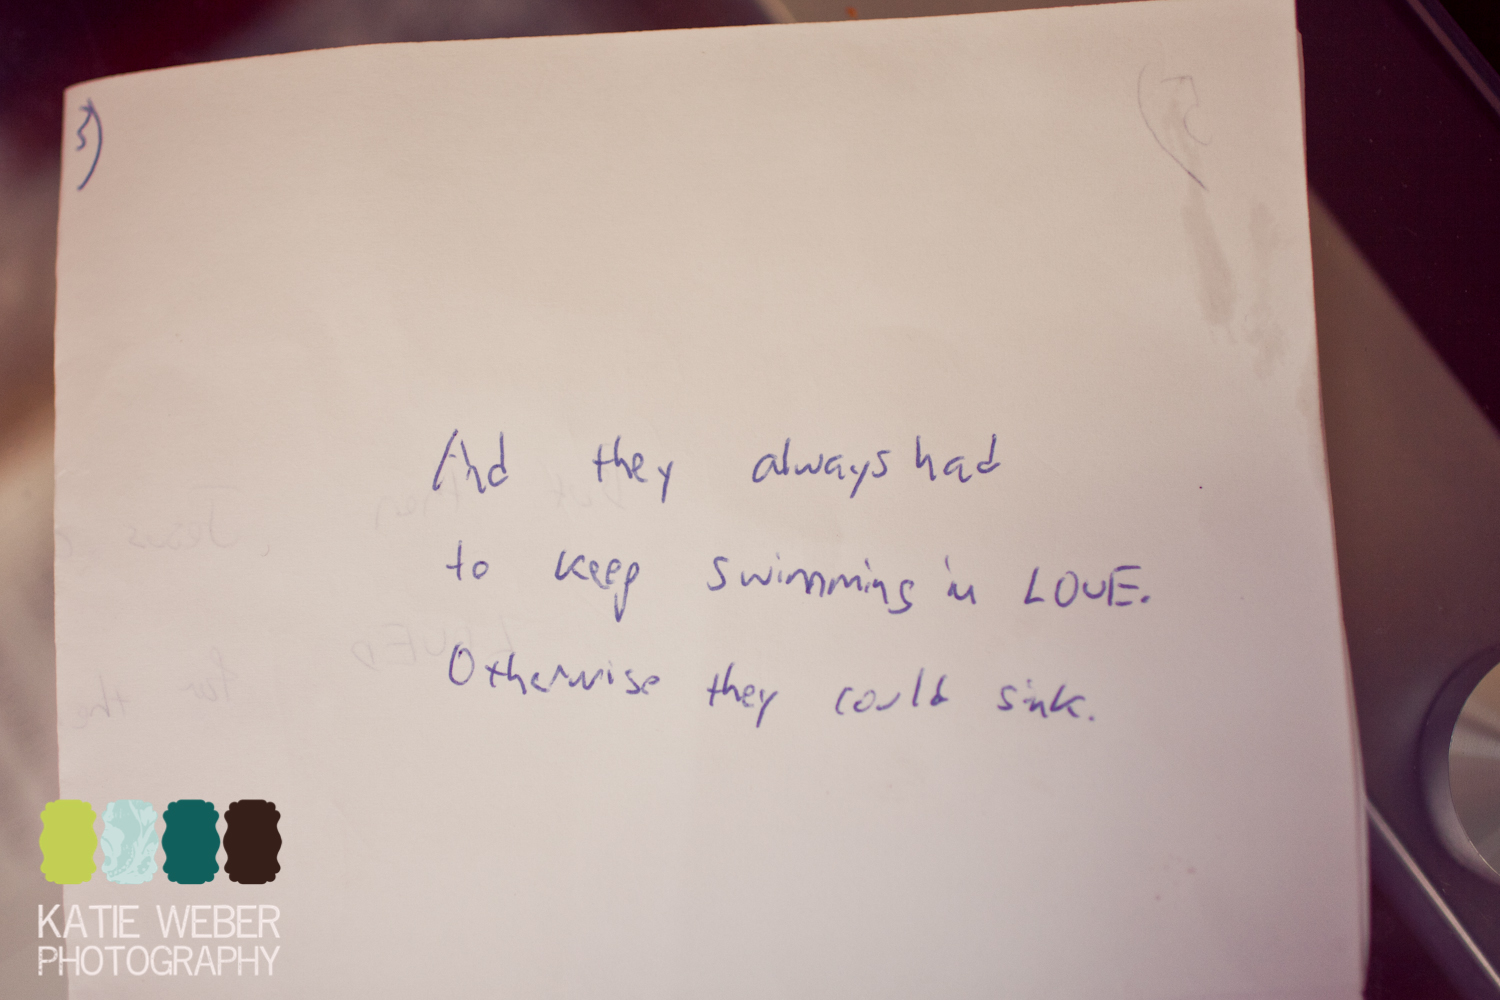 3)
And they always had
to keep swimming in LOVE.
Otherwise they could sink.
KATIE WEBER
PHOTOGRAPHY